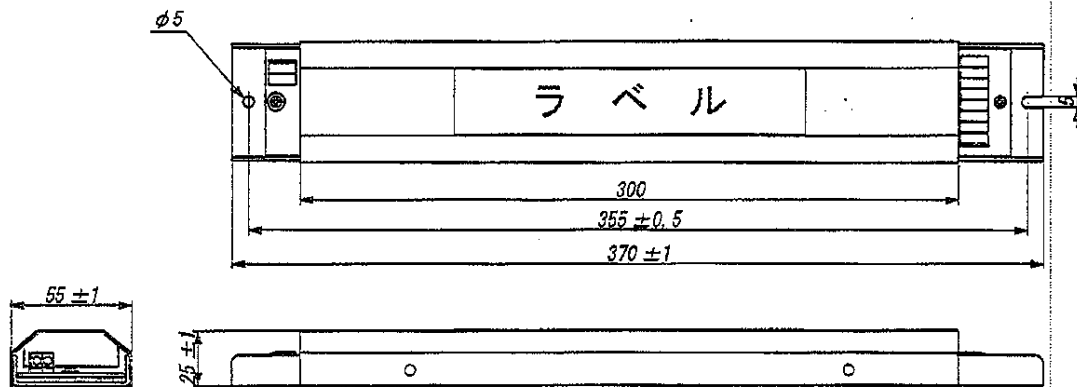 φ5
ラベル
5
300
355 ±0.5
370 ±1
55 ±1
25 ±1